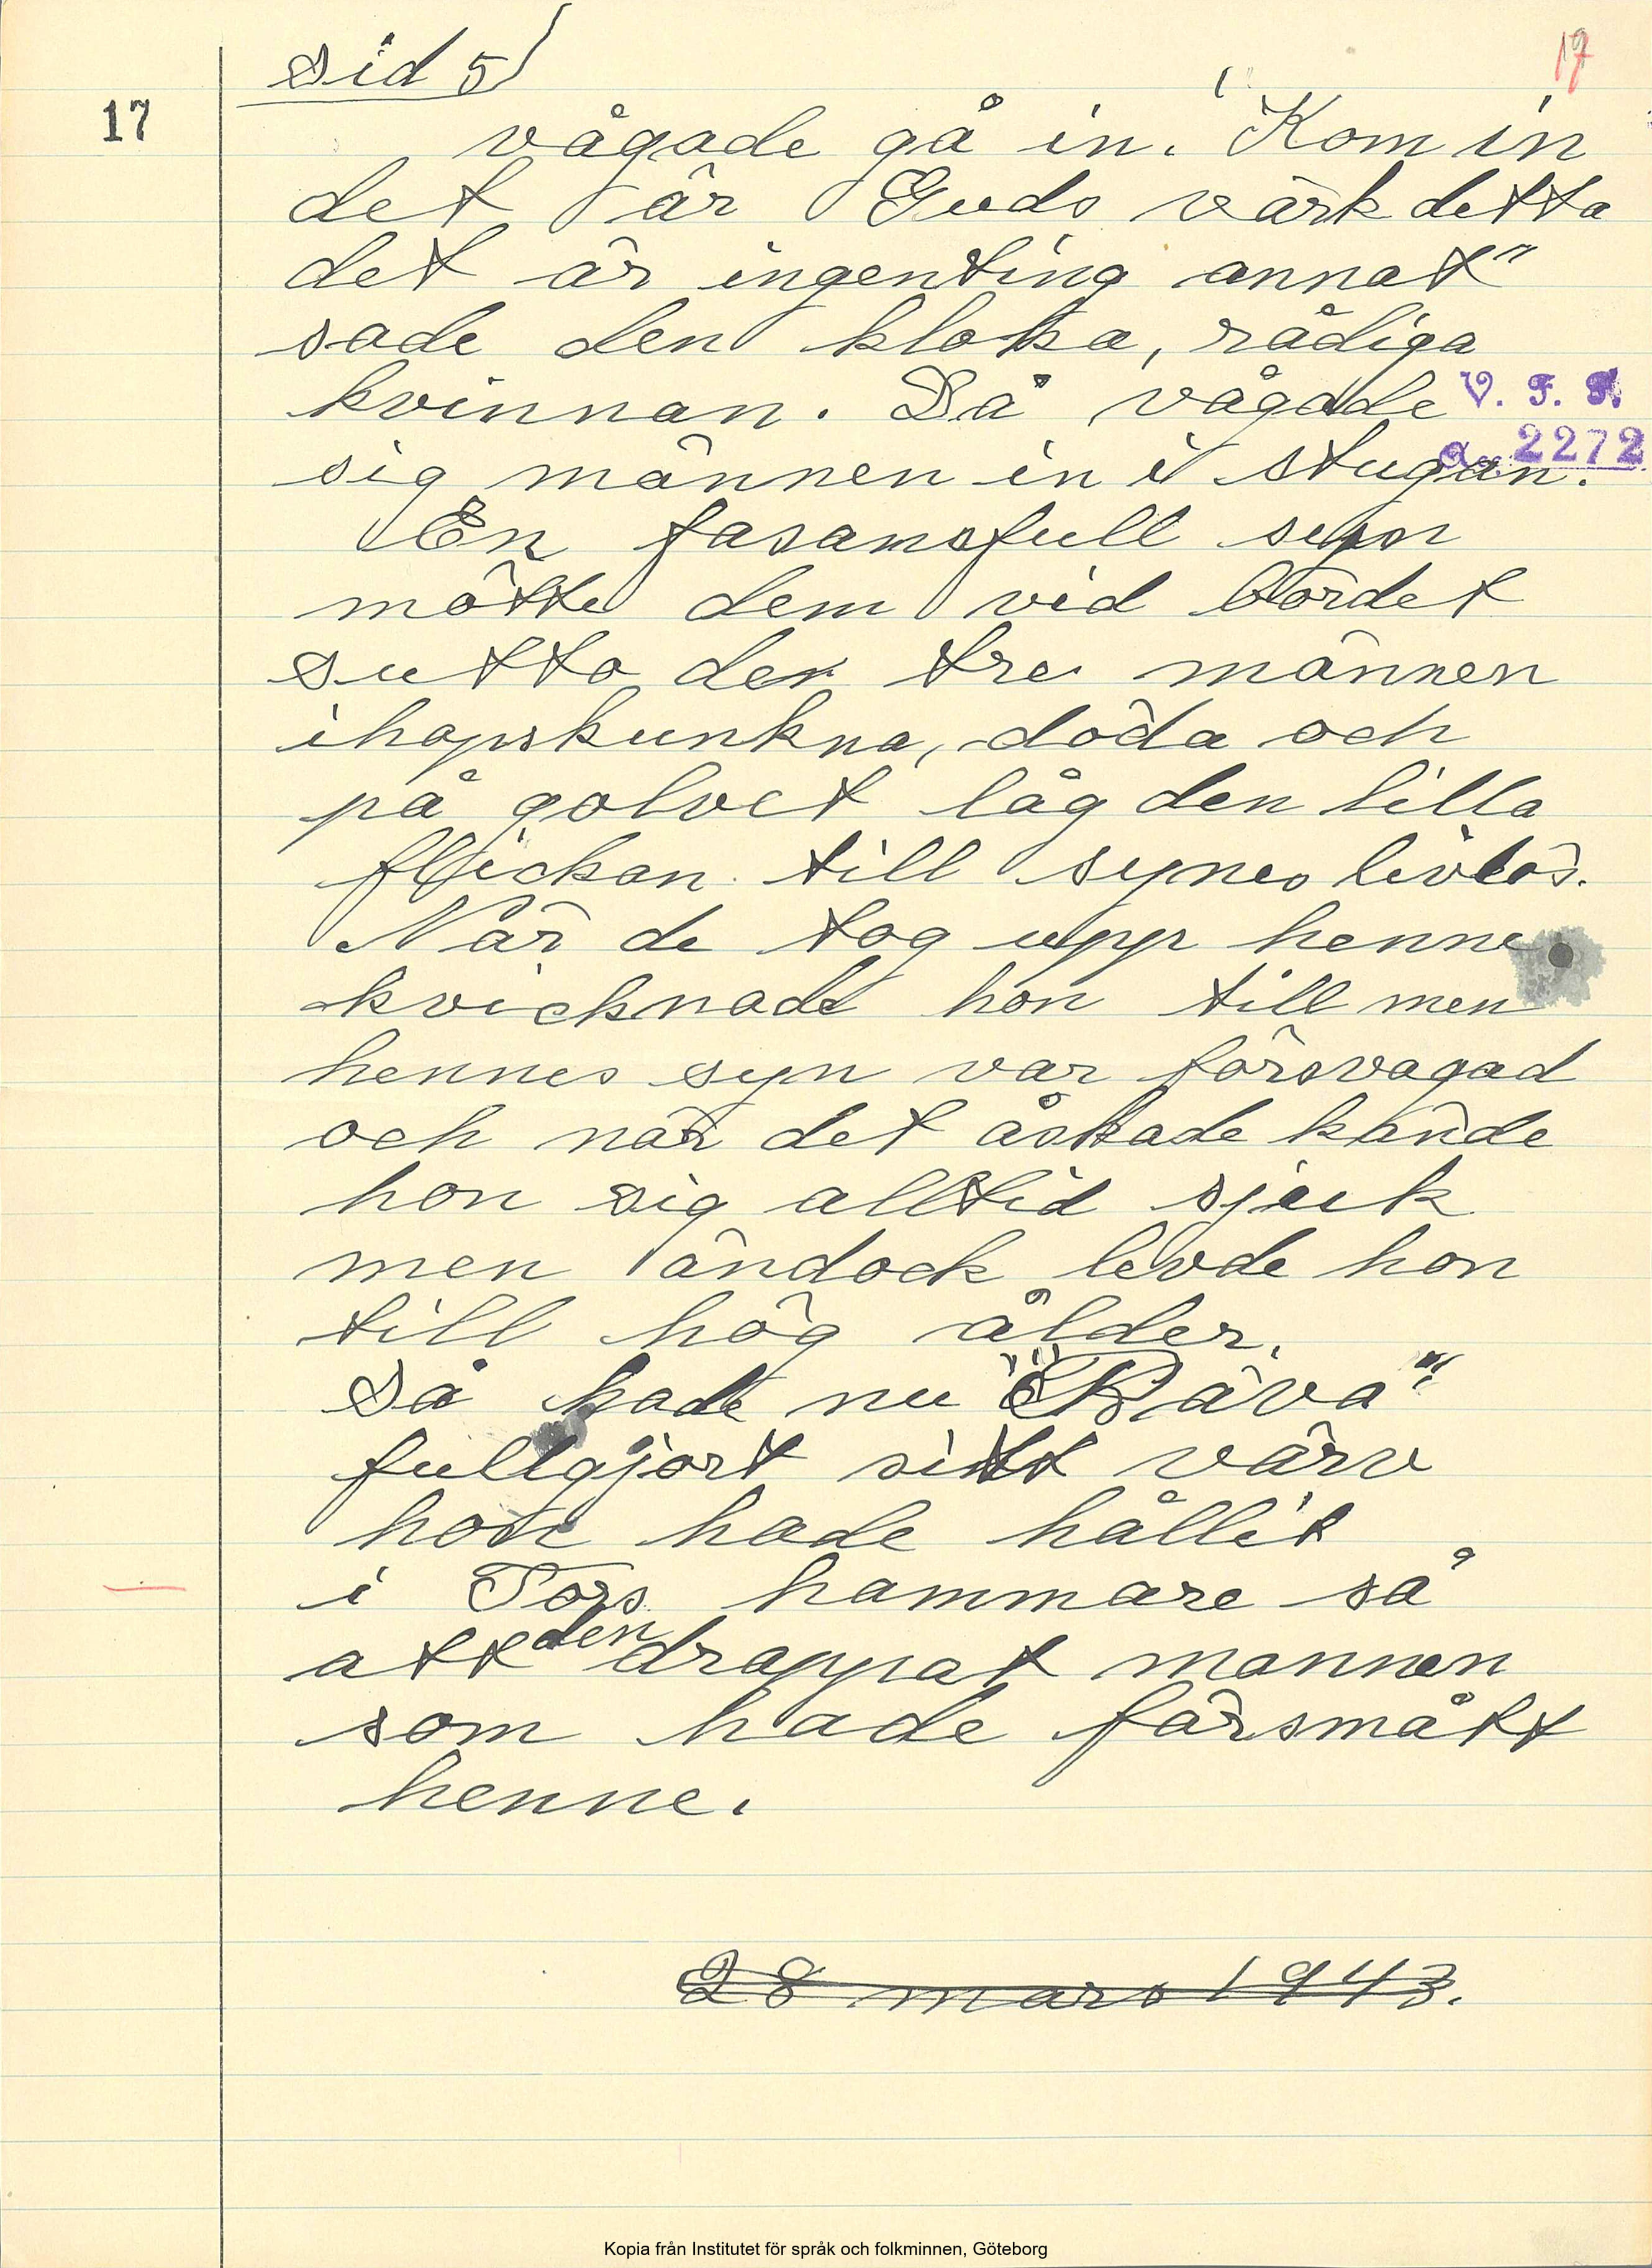 sid 5)
17
17
vågade gå in. "Kom in
det är Guds värk detta
det är ingenting annat"
sade den kloka, rådiga
kvinnan. Då vågade
V. F. F.
2272
sig männen in i stugan.
En fasansfull syn
mötte dem vid bordet
sutto de tre männen
ihopskunkna, döda och
på golvet låg den lilla
flickan till synes livlös.
När de tog upp henne
kvicknade hon till men
hennes syn var försvagad
och när det åskade kände
hon sig alltid sjuk
men ändock levde hon
till hög ålder.
Så hade nu "Räva"
fullgjort sitt värv
hon hade hållit
i Tors hammare så
att den drappat mannen
som hade försmått
henne.
28 mars 1943.
Kopia från Institutet för språk och folkminnen, Göteborg